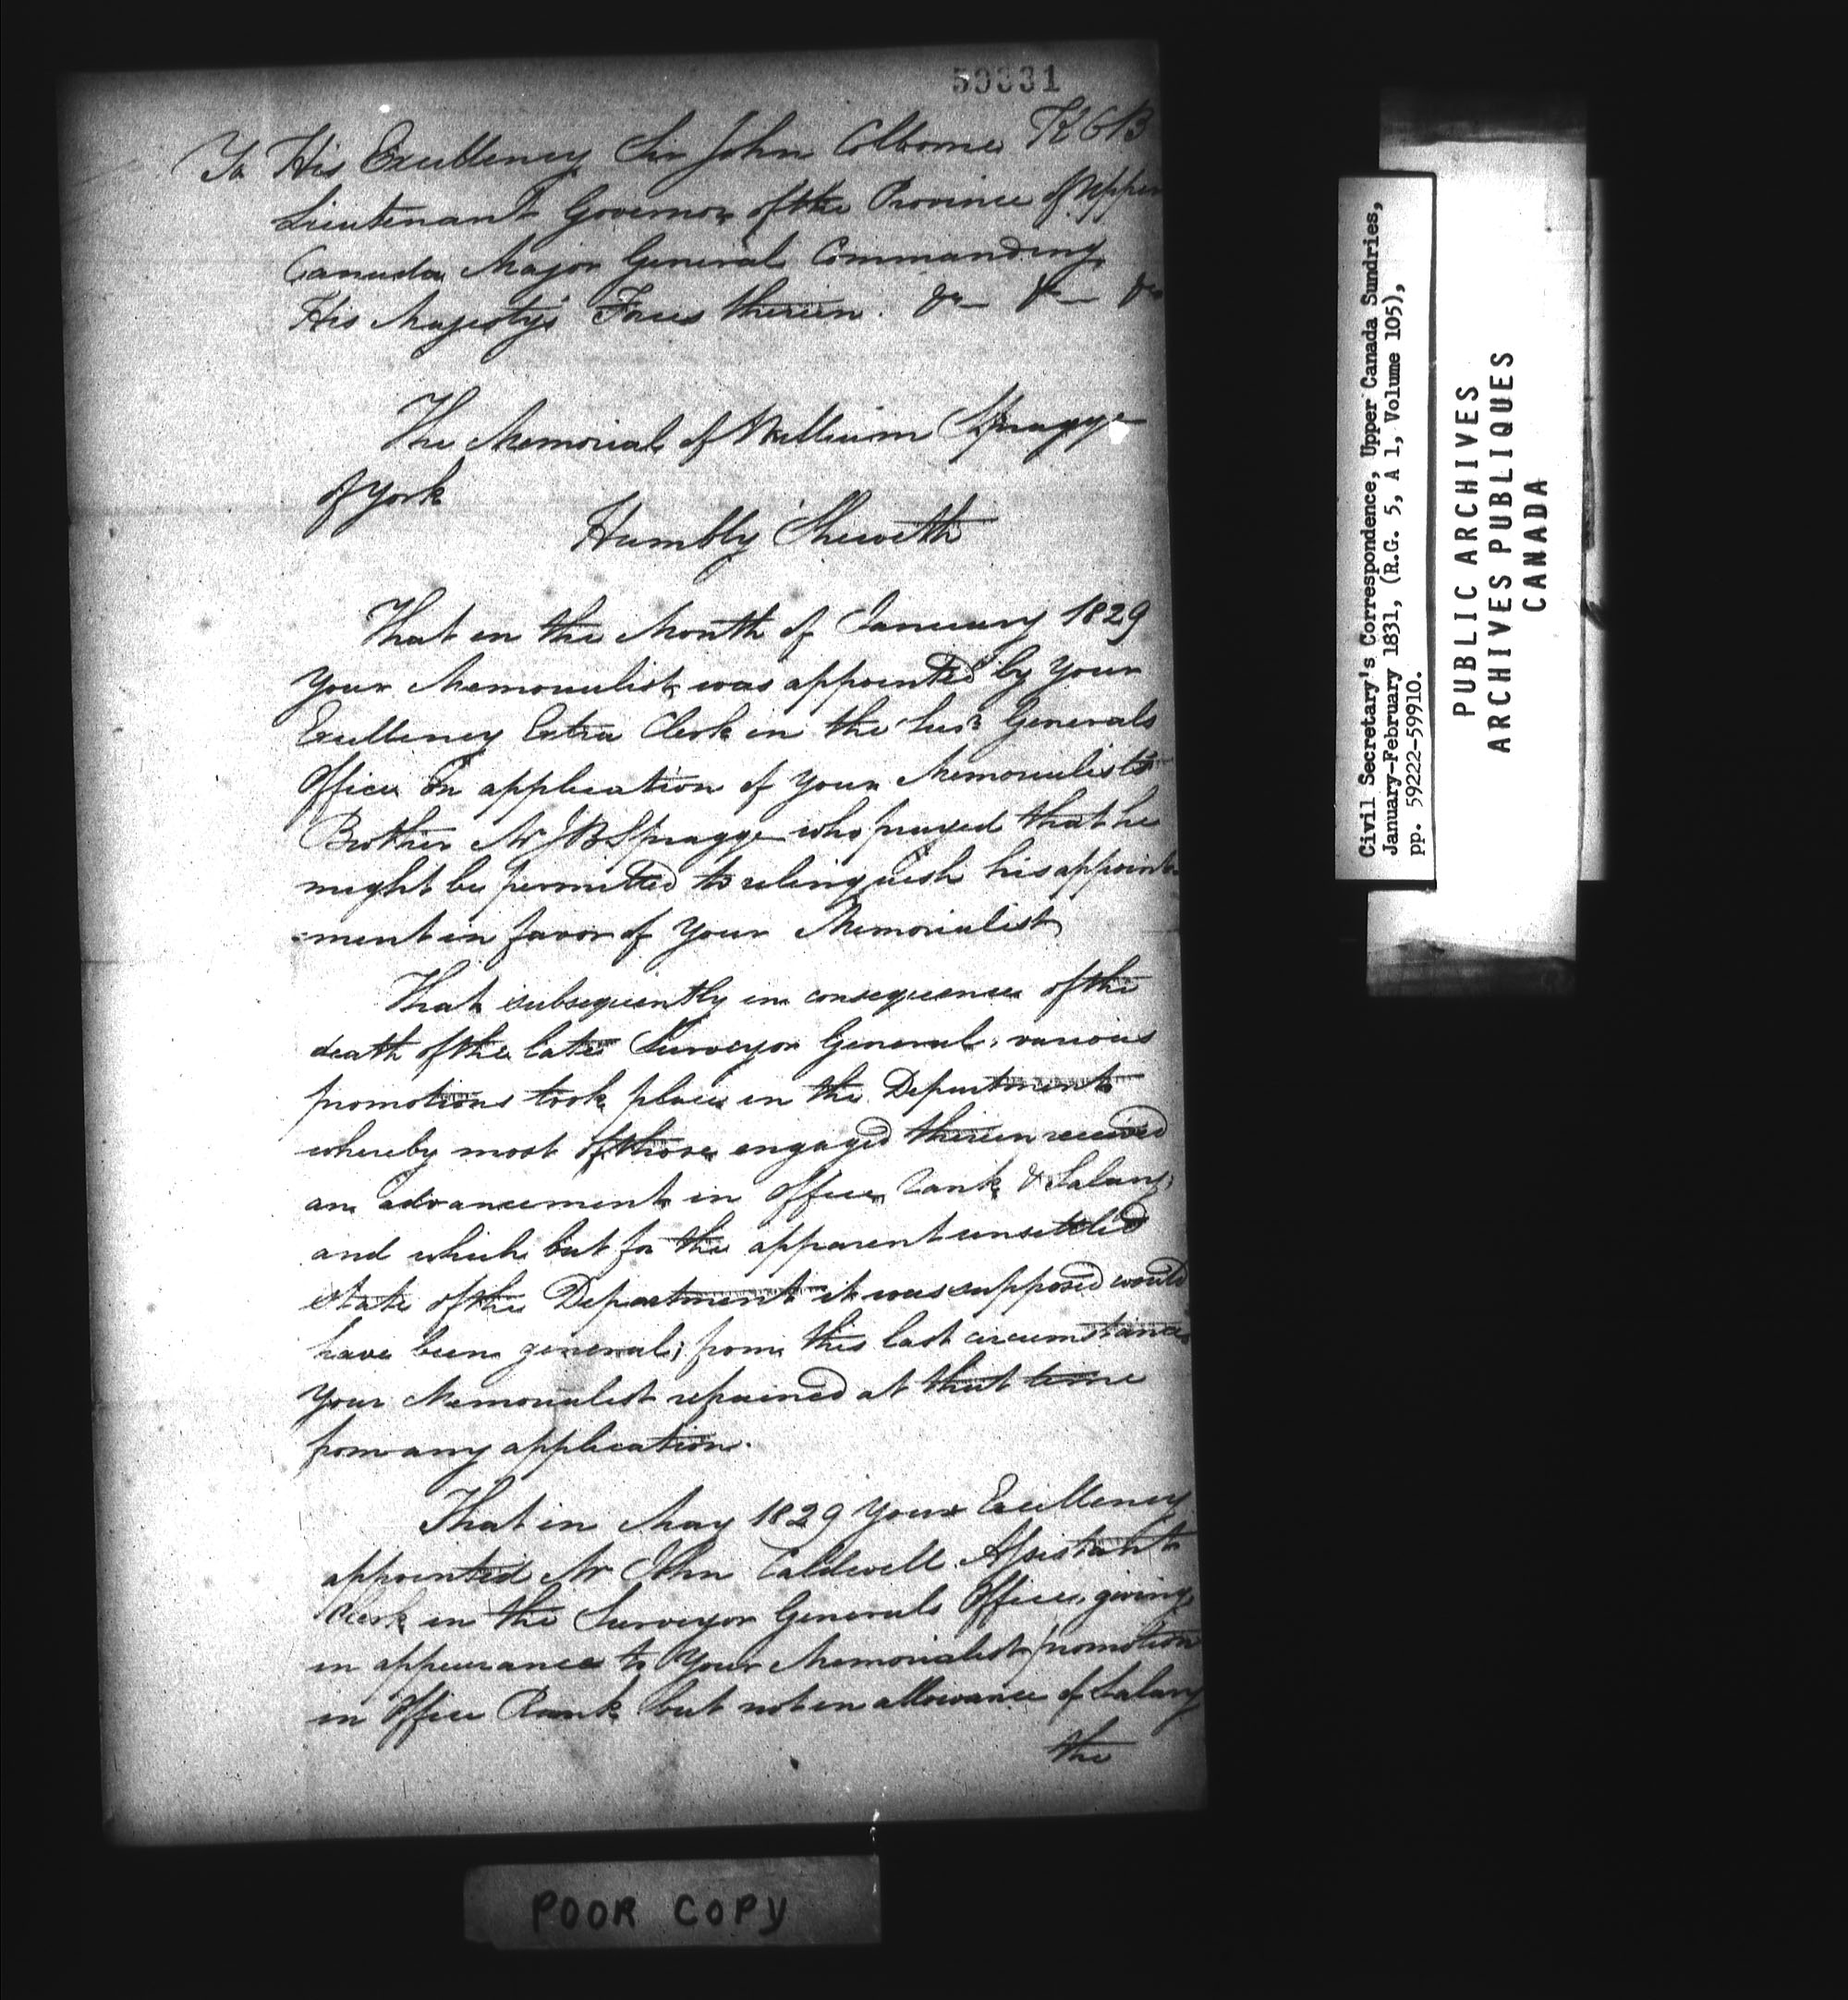 59331
To His Excellency Sir John Colborne K C B
Lieutenant Governor of the Province of Upper
Canada Major General Commanding
His Majesty's Forces therein. &c &c &c
The Memorial of William Spragge
of York
Humbly Sheweth
That in the Month of January 1829
Your Memorialist was appointed by Your
Excellency Extra Clerk in the Surr Generals
Office on application of Your Memorialists
Brother Mr J B Spragge who prayed that he
might be permitted to relinquish his appoint
-ment in favor of Your Memorialist
That subsequently in consequence of the
death of the late Surveyor General, various
promotions took place in the Department
whereby most of those engaged therein received
an advancement in Office Rank & Salary,
and which but for the apparent unsettled
state of the Department it was supposed would
have been general; from this last circumstance
Your Memorialist refrained at that time
from any application.
That in May 1829 Your Excellency
appointed Mr John Caldwell Assistant
Clerk in the Surveyor Generals Office, giving
in appearance to Your Memorialist promotion
in Office Rank but not in allowance of Salary
the
POOR COPY
Civil Secretary's Correspondence, Upper Canada Sundries,
January-February 1831, (R.G. 5, A 1, Volume 105),
pp. 59222-59910.
PUBLIC ARCHIVES
ARCHIVES PUBLIQUES
CANADA